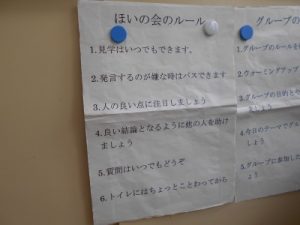 ほいの会のルール
1.見学はいつでもできます。
2.発言するのが嫌な時はパスできます
3.人の良い点に注目しましょう
4.良い結論となるように他の人を助け
ましょう
5.質問はいつもどうぞ
6.トイレにはちょっとことわってから
グループの
1.グループのルールを
2.ウォーミングアップ
3.グループの目的と
ましょう
4.今日のテーマでグル
しょう
5.グループに参加した